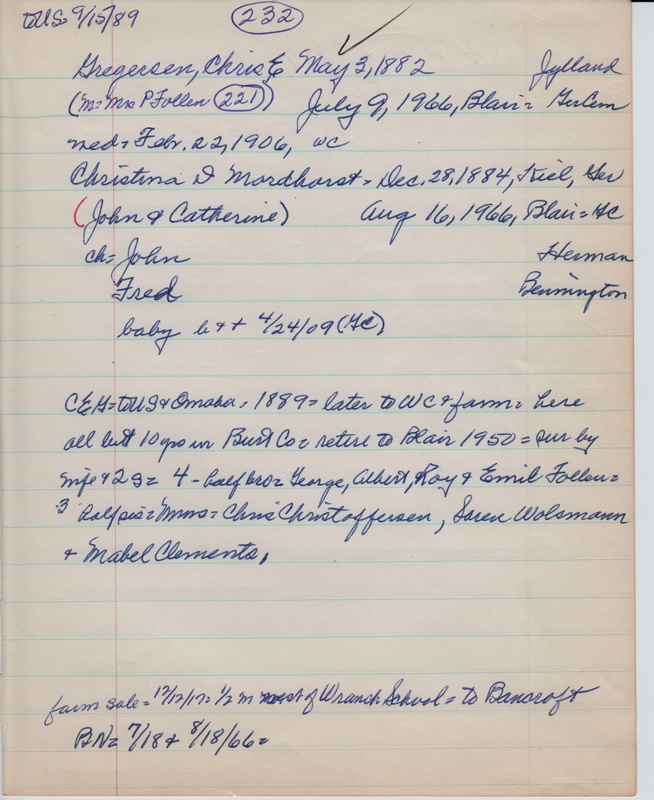 to US = 9/15/89 232
Gregersen, Chris E May 3, 1882 Jylland
(m = Mrs P Follen 221) July 9, 1966, Blair = GerCem
med = Febr. 22, 1906, WC
Christina D Mordhorst = Dec. 28, 1884, Kiel, Ger
(John & Catherine) Aug 16, 1966, Blair = GC
ch = John Herman
Fred Bennington
baby b & + 4/24/09 (GC)
CEG = to US & Omaha = 1889 = later to WC & farm = here
all but 10 yrs in Burt Co = retire to Blair 1950 = sur by
wife & 2 s = 4 - half bro = George, Albert, Roy & Emil Follen =
3 half sis = Mmes = Chris Christoffersen, Soren Wolsmann
& Mabel Clements,
farm sale = 12/12/17 = 1/2 m west of Wranch School = to Bancroft
BN = 7/18 & 8/18/66 =